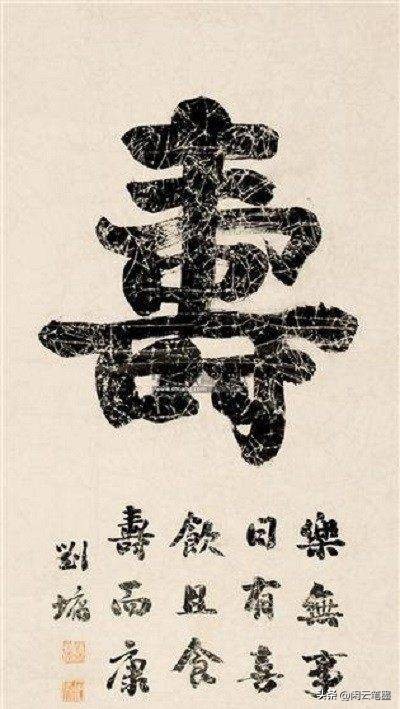 壽
樂無事
日有喜
飲且食
壽而康
劉墉
头条 @闲云笔墨